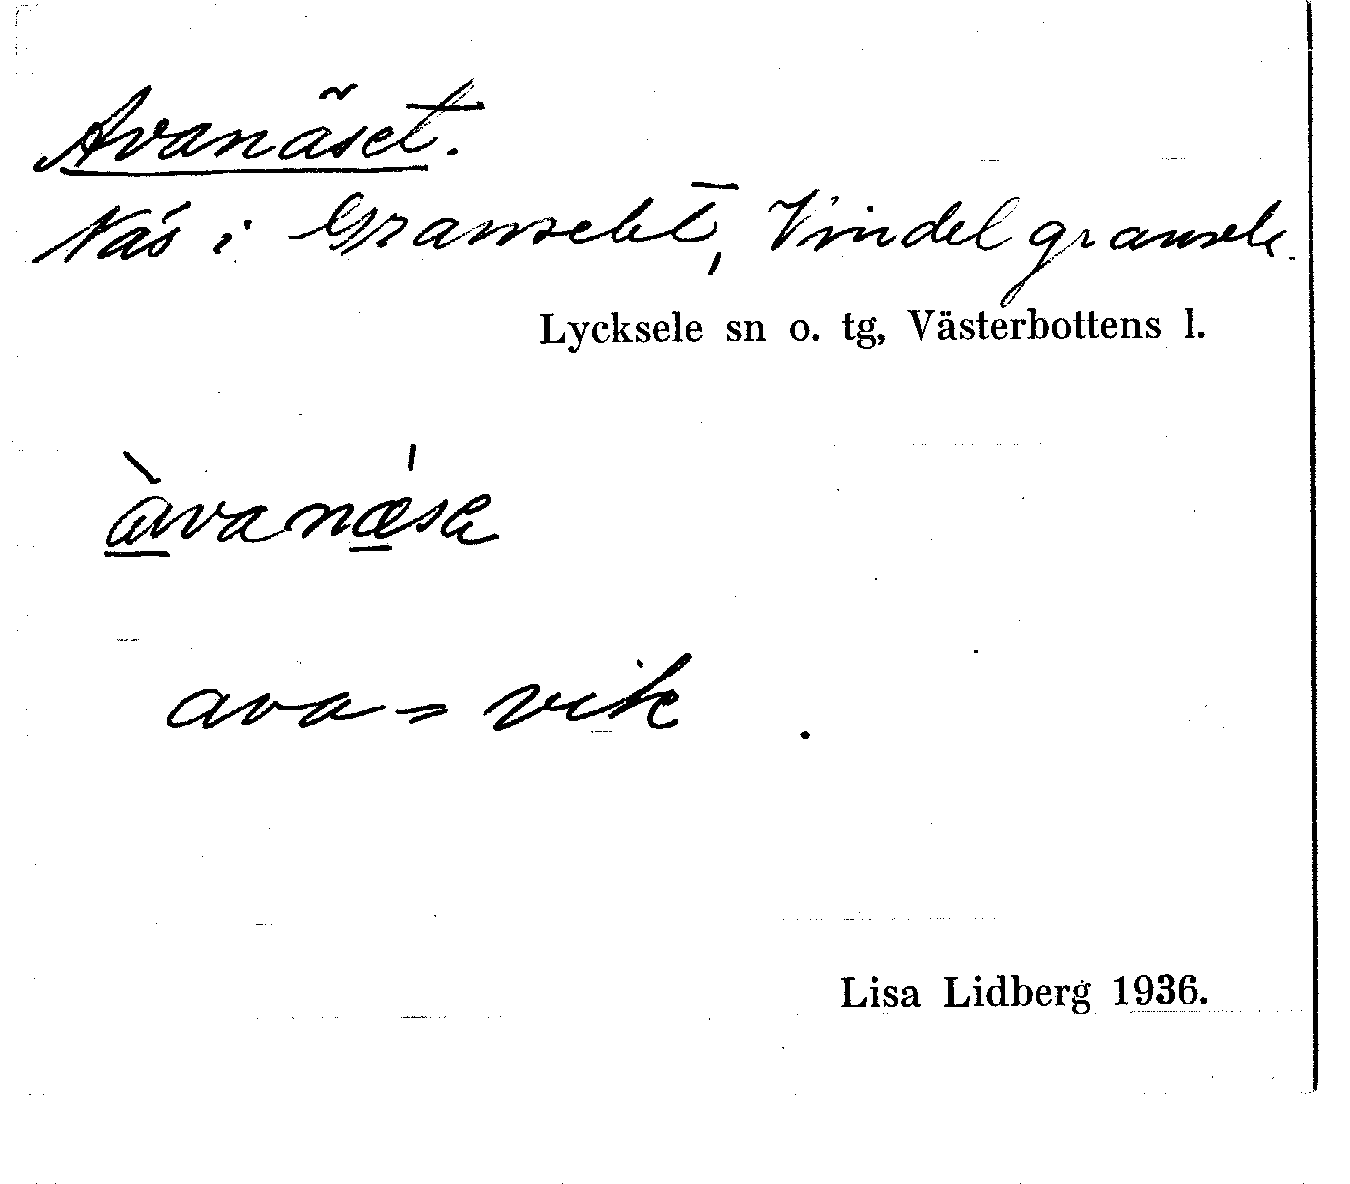 Avanäset.
Näs i Granselet, Vindelgransele.
Lycksele sn o. tg, Västerbottens l.
àvanǽsɐ
ava = vik
Lisa Lidberg 1936.